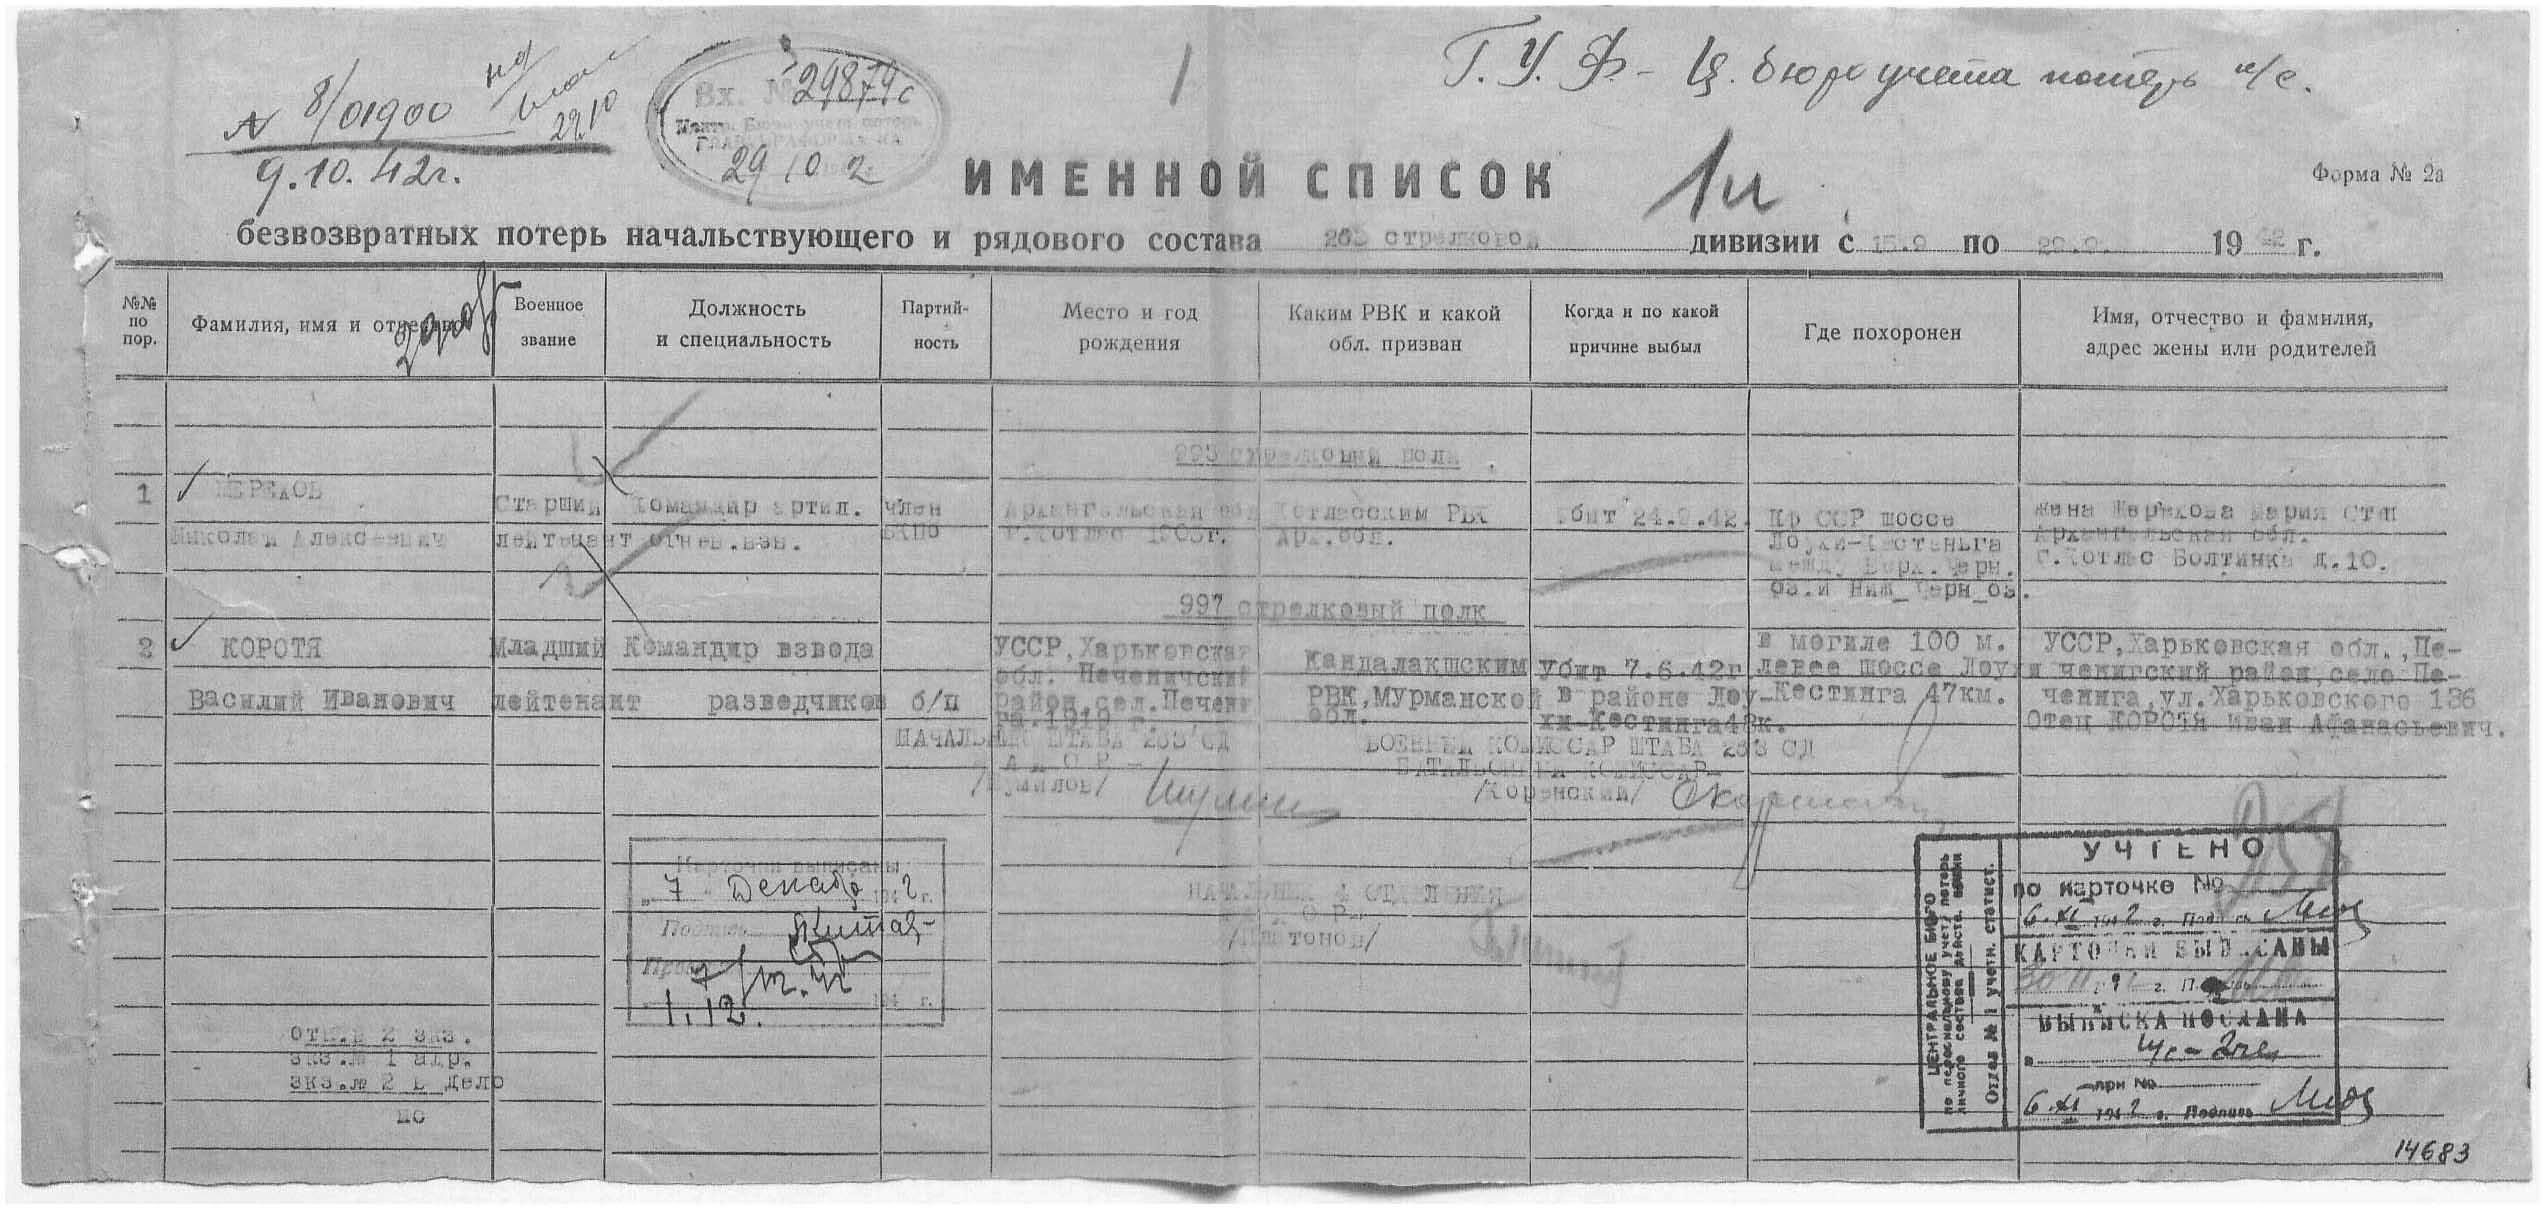 8/01900
9.10.42г.
Вх. № 29879с
29 10 2
Г.У.Ф. - Ц. бюро учета потерь н/с.
1
1и
ИМЕННОЙ СПИСОК
Форма № 2а
безвозвратных потерь начальствующего и рядового состава 263 стрелковой дивизии с 15.9 по 29.9. 1942 г.
№№ по пор.
Фамилия, имя и отчество
Военное звание
Должность и специальность
Партий-ность
Место и год рождения
Каким РВК и какой обл. призван
Когда и по какой причине выбыл
Где похоронен
Имя, отчество и фамилия, адрес жены или родителей
995 стрелковый полк
1
Николай Алексеевич
Старший лейтенант
Командир артил. огнев.взв.
член ВКПб
Архангельская обл
г.Котлас
Котласским РВК
Арх.обл.
Убит 24.9.42.
КФ ССР шоссе
Лоухи-Кестеньга
между Верх.Черн.
оз.и Ниж_Черн_оз.
жена Мария Степ
Архангельская обл.
г.Котлас Болтинка д.10.
997 стрелковый полк
2
КОРОТЯ
Василий Иванович
Младший
лейтенант
Командир взвода
разведчиков
б/п
УССР,Харьковская
обл. Печеничский
район,сел.Печени
га.1919 г.
Кандалакшским
РВК,Мурманской
обл.
Убит 7.6.42г
в районе Лоу-
хи-Кестинга48к.
в могиле 100 м.
левее шоссе Лоухи
-Кестинга 47км.
УССР,Харьковская обл.,Пе-
ченигский район,село Пе-
ченига,ул.Харьковского 136
Отец КОРОТЯ Иван Афанасьевич.
НАЧАЛЬНИК ШТАБА 263 СД
МАЙОР -
/Шумилов/
ВОЕННЫЙ КОМИССАР ШТАБА 263 СД
БАТАЛЬОННЫЙ КОМИССАР-
/Коренский/
НАЧАЛЬНИК 4 ОТДЕЛЕНИЯ
МАЙОР-
/Платонов/
Карточки выписаны
"7" Декабр 1942 г.
Подпись
1.12.
194 г.
отп.в 2 экз.
экз.№ 1 адр.
экз.№ 2 в дело
по
ЦЕНТРАЛЬНОЕ БЮРО
по персональному учету потерь
личного состава действ. армии
Отдел № 1 учетн. статист.
УЧТЕНО
по карточке №
6.XI 1942 г. Подпись
КАРТОЧКИ ВЫПИСАНЫ
ВЫПИСКА ПОСЛАНА
при №
6.XI 1942 г. Подпись
14683